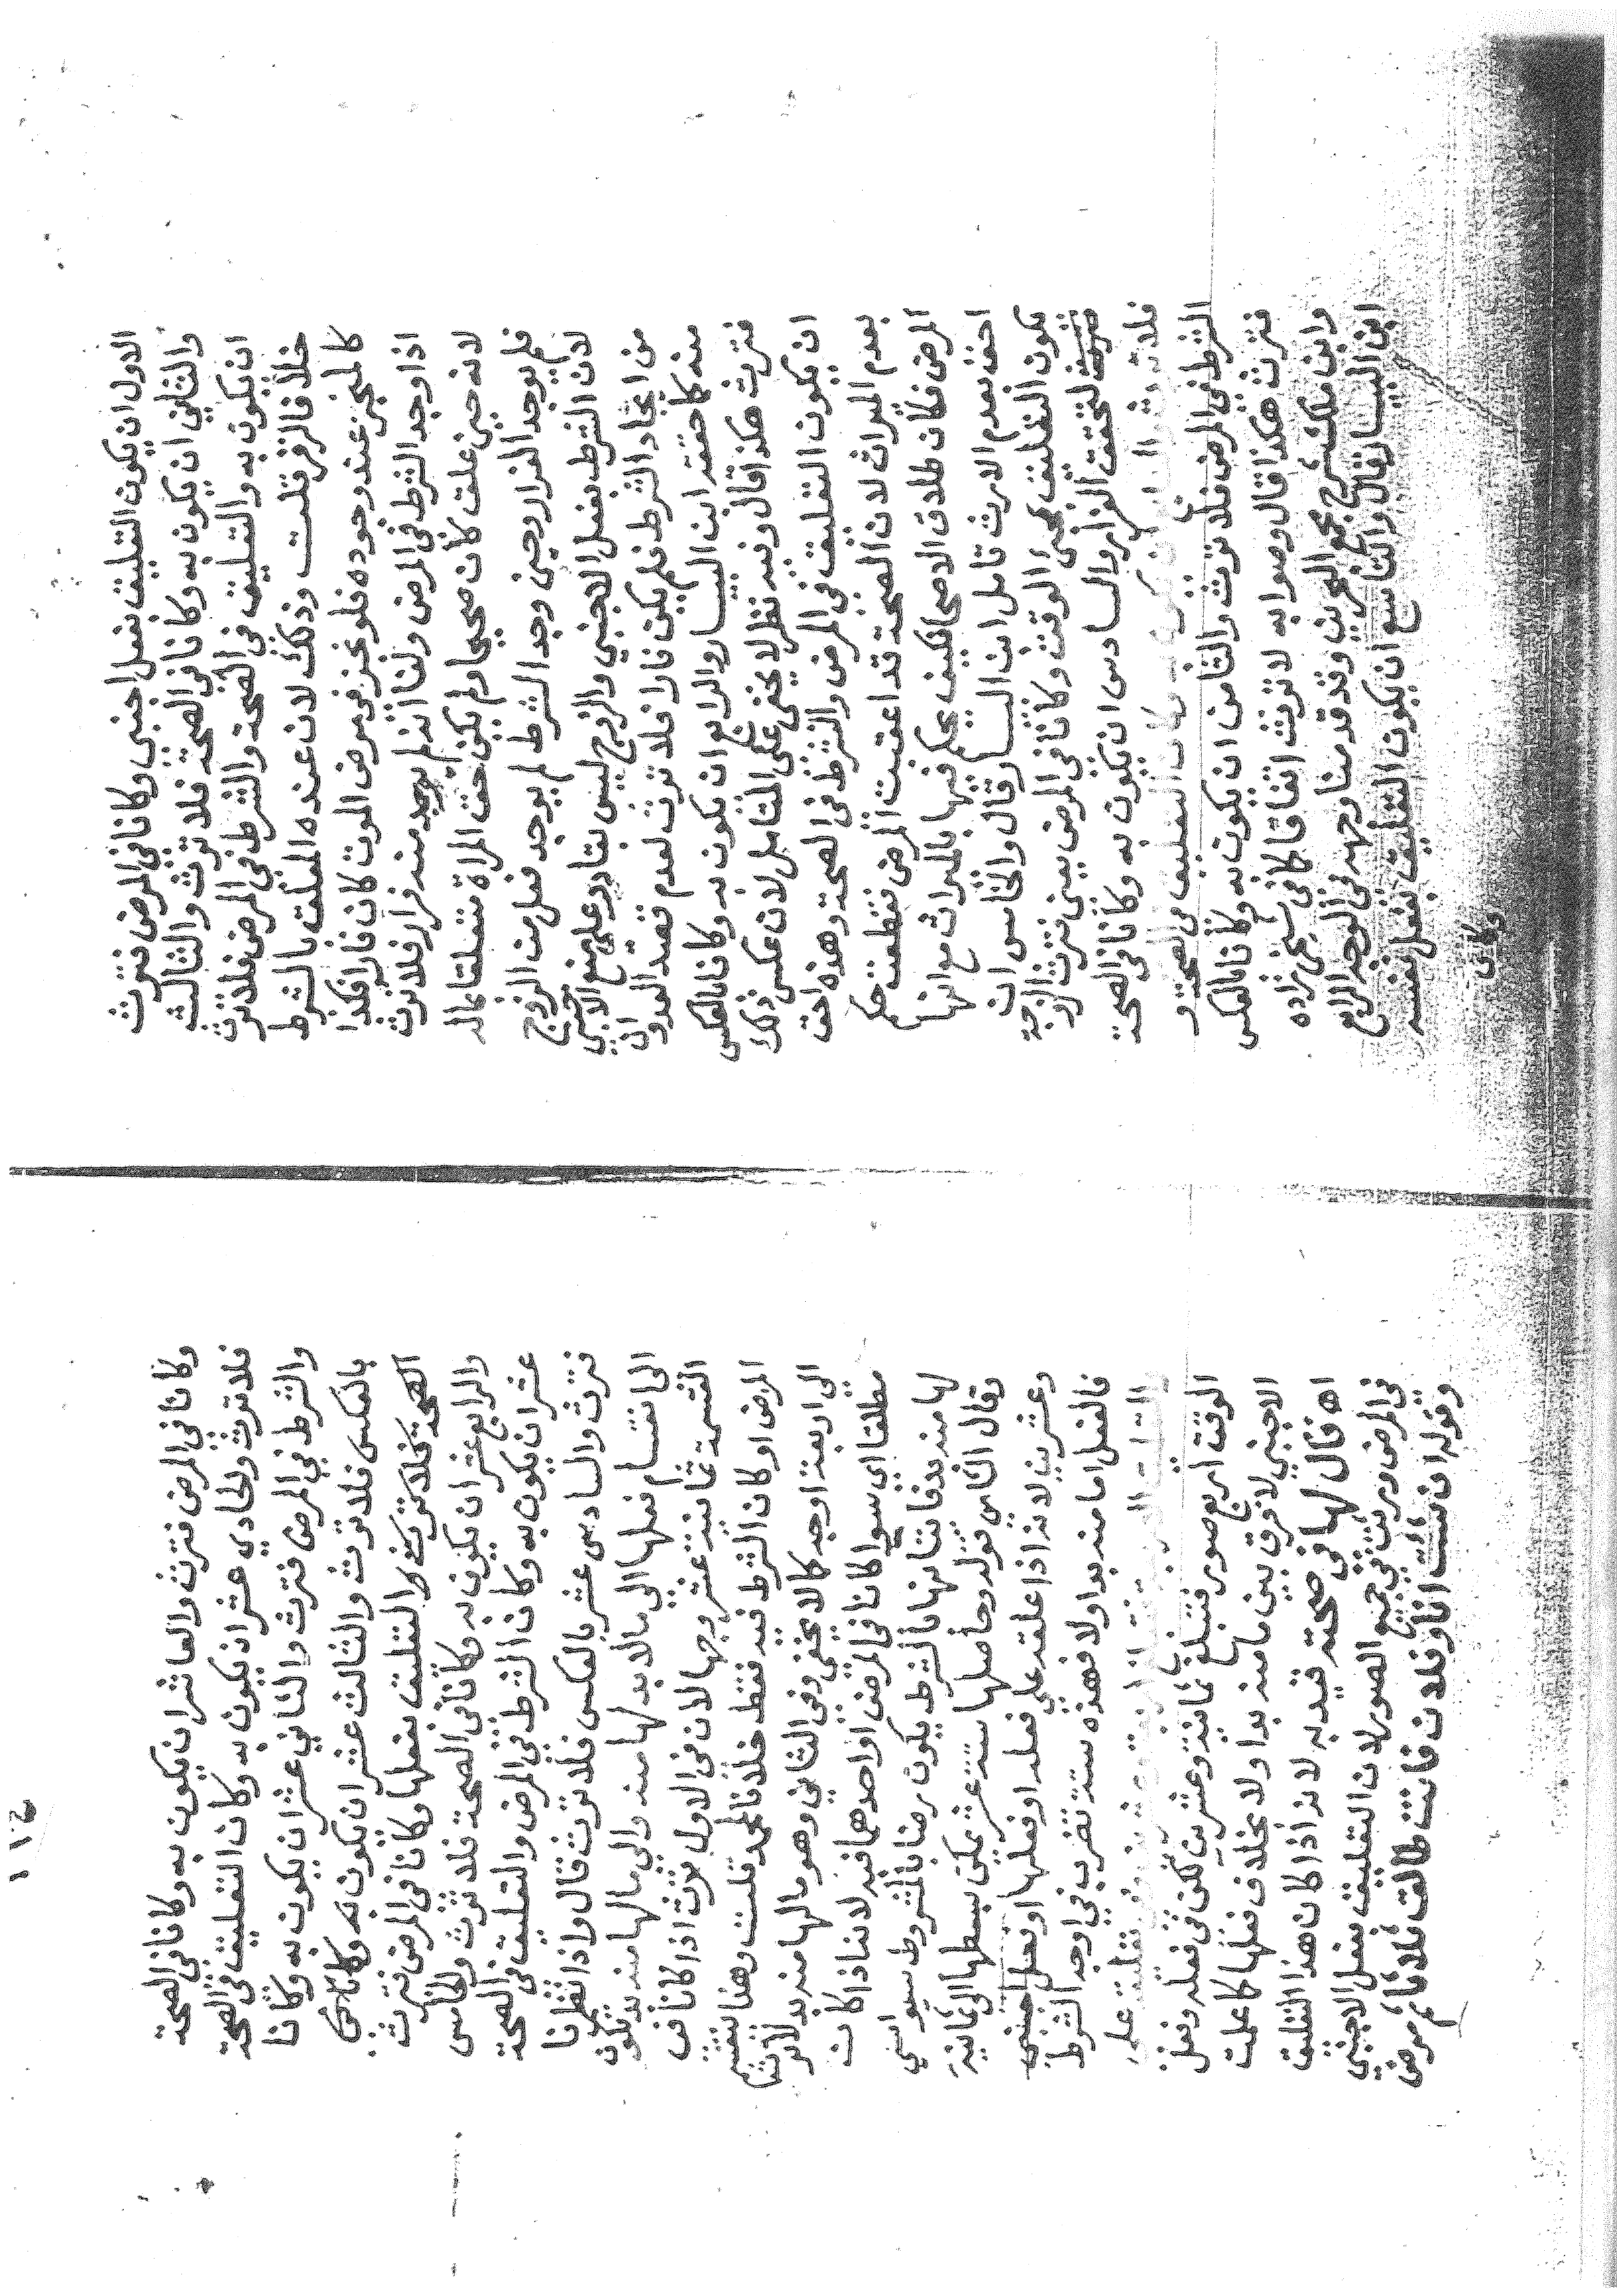 الاول ان يكون التعليق بفعل اجنبى وكانا فى المرض فترث
والثاني ان يكون به وكانا فى الصحة فلا ترث والثالث
ان يكون به والتعليق فى الصحة والشرط فى المرض فلا ترث
خلافا لزفر قلت وذلك لان عنده المعلق بالشرط
كالمنجز عند وجوده فلو نجز فى مرض الموت كان فارا فكذا
اذا وجد الشرط فى المرض ولنا انه لم يوجد منه فرار فلا ترث
لانه حين علق كان صحيحا ولم يكن حق المراة متعلقا بماله
فلم يوجد الفرار وحين وجد الشرط لم يوجد فعل من الزوج
لان الشرط بفعل الاجنبي والزوج ليس بقادر على منع الاجنبي
من ايجاد الشرط فلم يكن فارا فلا ترث لعدم قصد العدوان
منه كما حققه ابن البيسار والرابع ان يكون به وكانا بالعكس
فترث هكذا قال وفيه نظر لا يخفى على المتامل لان عكس ذلك
ان يكون التعليق فى المرض والشرط فى الصحة وهذه احق
بعدم الميراث لان الصحة قد اعقبت المرض فقطعت حكم
المرض فكان طلاق الاصحا فكيف يحكم فيها بالميراث مع انها
احق بعدم الارث تامل ابن البيسار قال والخامس ان
يكون التعليق بمجى الوقت وكانا فى المرض يعني ترث الزوجة
لتحقق الفرار والسادس ان يكون به وكانا فى الصحة
فلا ترث ان يكون التعليق فى الصحة و
الشرط فى المرض فلا ترث والثامن ان يكون به وكانا بالعكس
فترث هكذا قال وصوابه لا ترث اتفاقا كما فى زاده
وابن ملك شرح مجمع البحرين وقد قدمنا وجهه فى الوجه الرابع
ابن البيسار قال والتاسع ان يكون التعليق بفعل نفسه
وكانا
١١٤
وكانا فى المرض فترث والعاشر ان يكون به وكانا فى الصحة
فلا ترث والحادي عشر ان يكون به وكان التعليق فى الصحة
والشرط فى المرض فترث والثاني عشر ان يكون به وكانا
بالعكس فلا ترث والثالث عشر ان يكون به وكانا فى
الصحة فلا ترث التعليق بفعلها وكانا فى المرض فترث
والرابع عشر ان يكون به وكانا فى الصحة فلا ترث والخامس
عشر ان يكون به وكان الشرط فى المرض والتعليق فى الصحة
فترث والسادس عشر بالعكس فلا ترث قال واذا نظرنا
الى انقسام فعلها الى مالابد لها منه والى مالها منه بد يكون
القسمة ثمانية عشر وجها لان فى الاول ترث اذا كانا فى
المرض او كان الشرط فيه فقط خلافا لمحمد قلت وهنا تنقسم
الى اربعة اوجه كما لا يخفى وفى الثاني وهو مالها منه بد لا ترث
مطلقا اي سوا كانا فى المرض او احدهما فيه لانا اذا كان
لها منه بد فاتيانها بالشرط يكون رضا بالمشروط سيواسي
وقال الثاني قوله وحاصلها ستة عشر يمكن بسطها الى ثمانية
وعشرين لانه اذا علقه على فعله او فعلها او بفعل اجنبي
فالفعل اما منه بد او لا فهذه ستة تضرب فى اوجه الشرط
تعليقه على
الوقت اربع صور فتبلغ ثمانية وعشرين لكن فى فعله وفعل
الاجنبي لا فرق بين ما منه بد او لا بخلاف فعلها كما علمت
اه قال لها فى صحته قيد به لانه اذا كان هذا التعليق
فى المرض ورثت فى جميع الصور لان التعليق بفعل الاجنبي
وقوله ان شئت انا وفلان فانت طالق ثلاثا ثم مرض